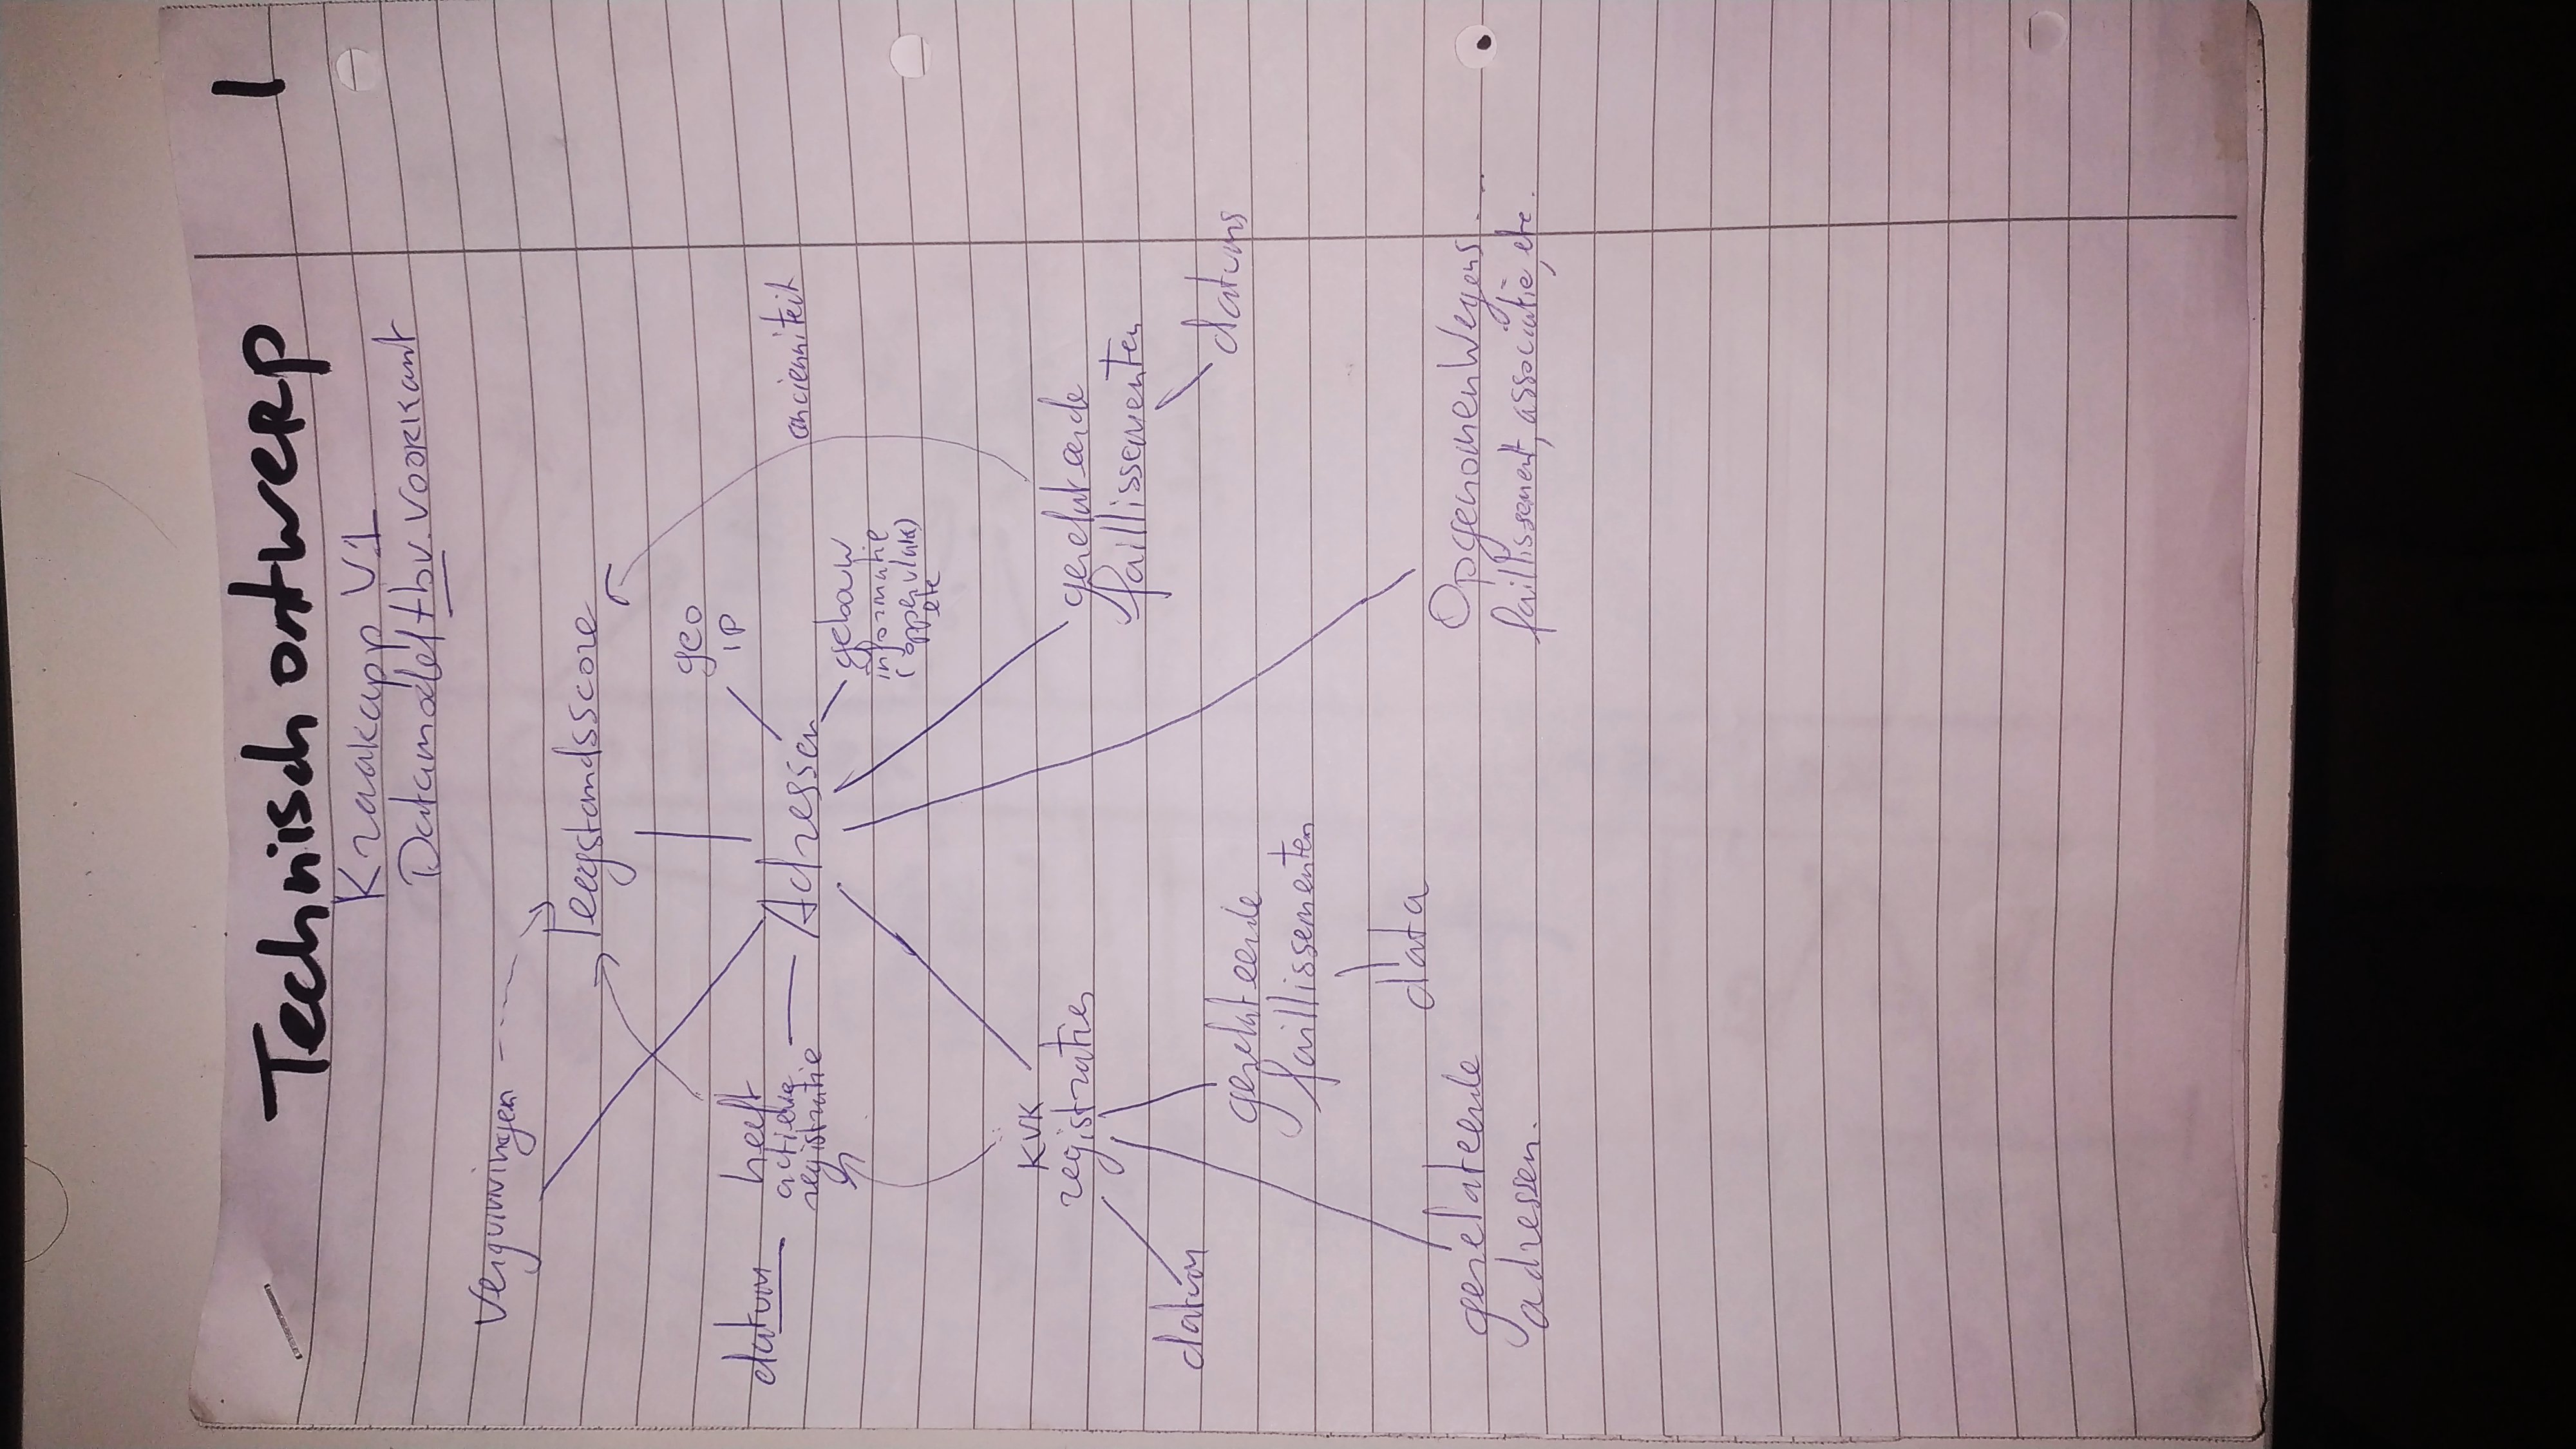 Technisch ontwerp
1
Kraakapp V1
Datamodel tbv. voorkant
Vergunningen
leegstandsscore
geo
IP
datum
heeft
actieve
registratie
Adressen
anciënniteit
gebouw
informatie
(oppervlak)
etc
KVK
registraties
gerelateerde
faillissementen
datum
datums
gerelateerde
faillissementen
data
gerelateerde
adressen.
Opgenomen wegens ...
faillissement, associatie, etc.